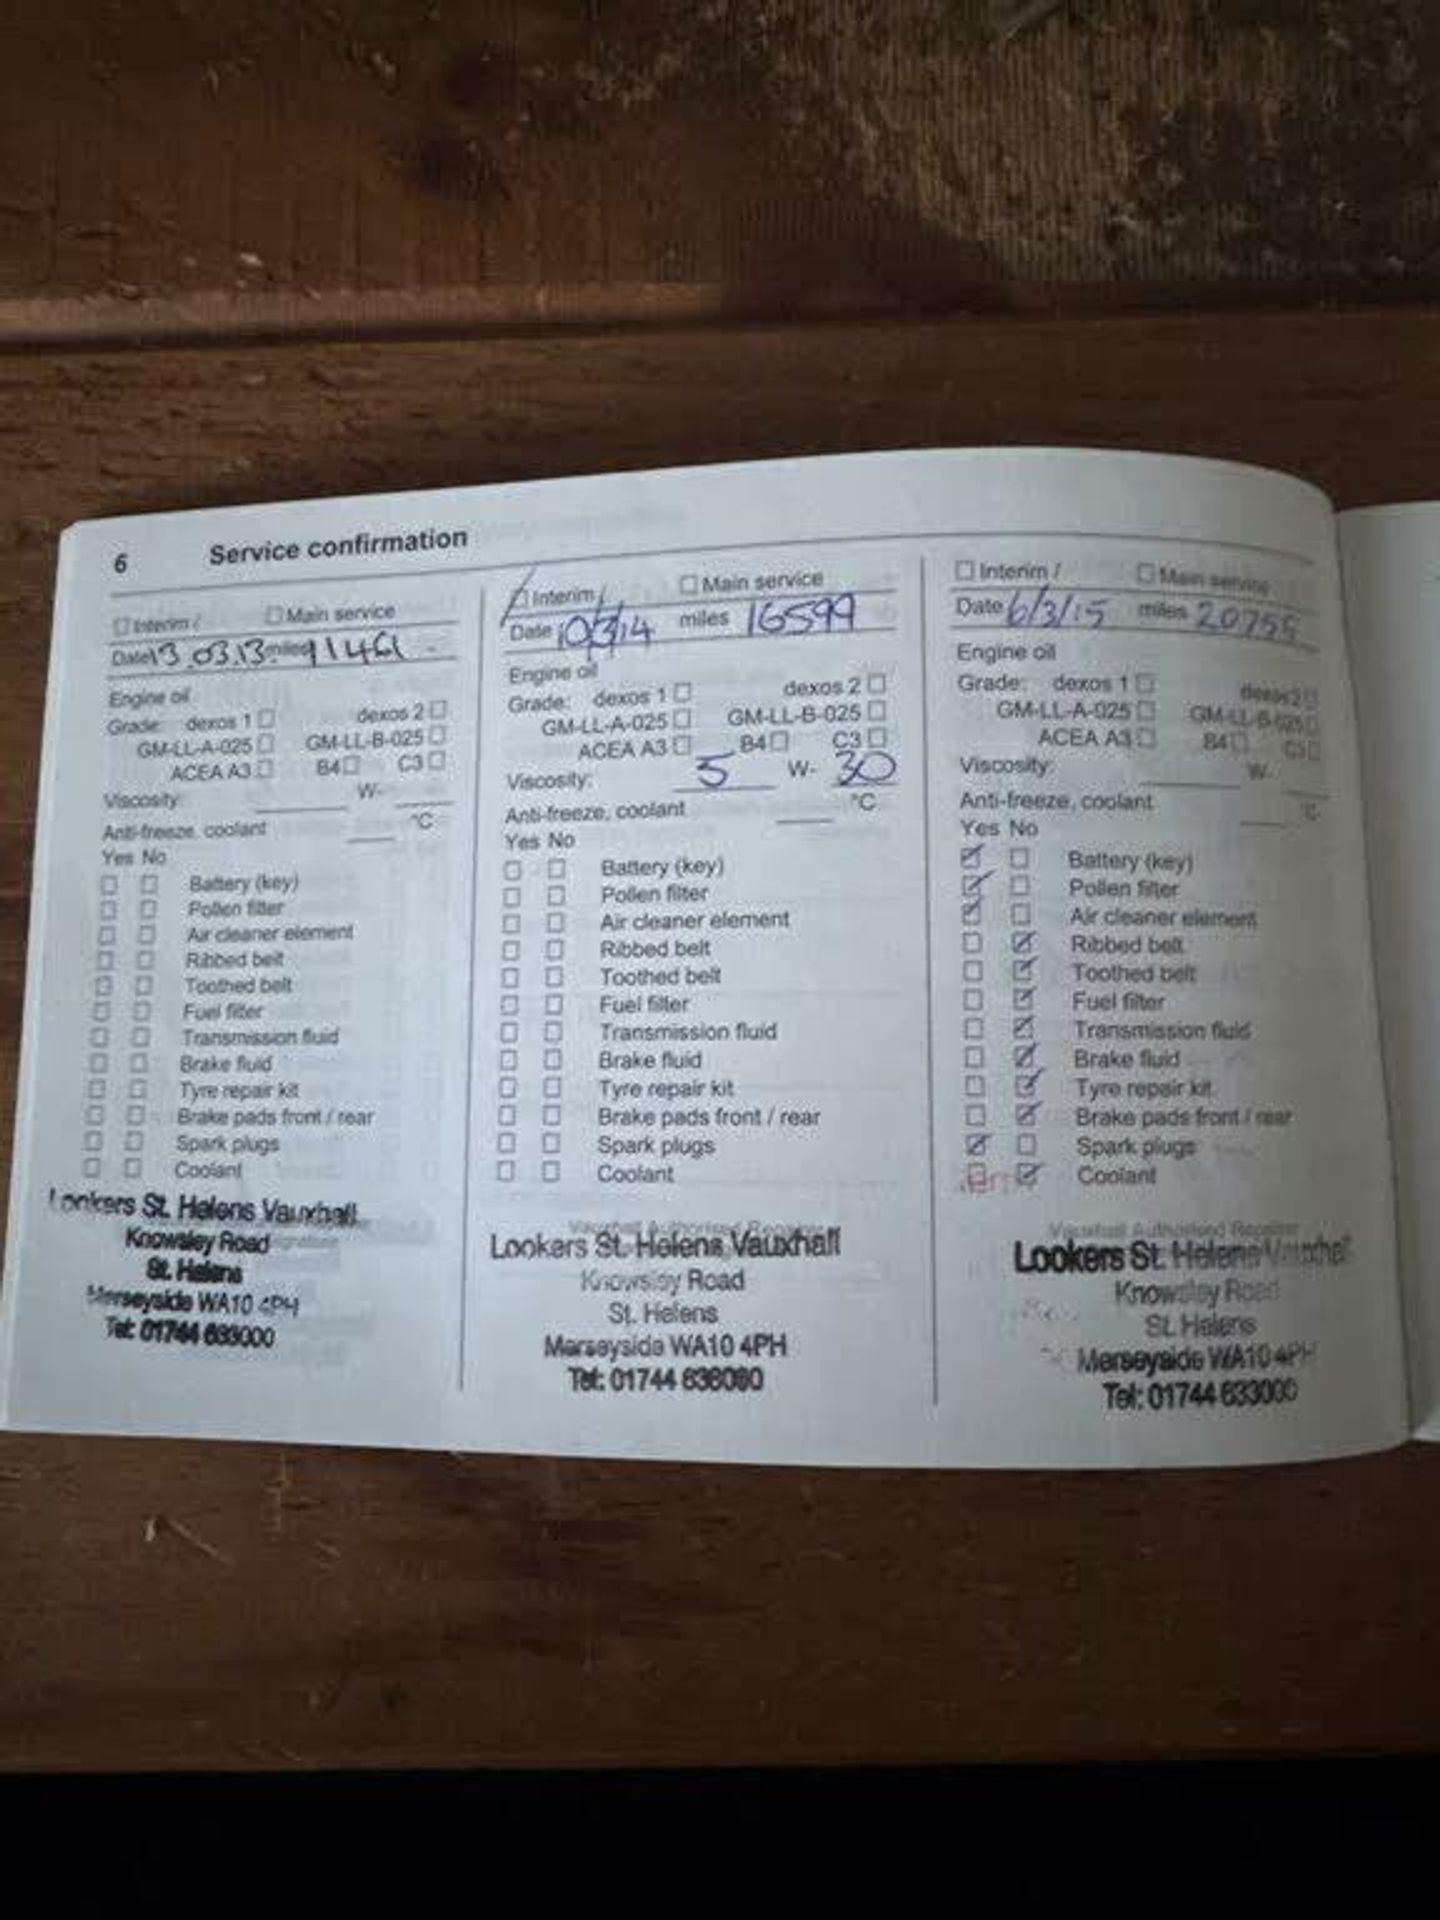 6 Service confirmation
Interim / Main service
Date 13 03.13 miles 11461
Engine oil
Grade: dexos 1 dexos 2
GM-LL-A-025 GM-LL-B-025
ACEA A3 B4 C3
Viscosity: W-
Anti-freeze, coolant °C
Yes No
Battery (key)
Pollen filter
Air cleaner element
Ribbed belt
Toothed belt
Fuel filter
Transmission fluid
Brake fluid
Tyre repair kit
Brake pads front / rear
Spark plugs
Coolant
Lookers St. Helens Vauxhall
Knowsley Road
St. Helens
Merseyside WA10 4PH
Tel: 01744 633000
Interim / Main service
Date 10/3/14 miles 16599
Engine oil
Grade: dexos 1 dexos 2
GM-LL-A-025 GM-LL-B-025
ACEA A3 B4 C3
Viscosity: 5 W- 30
Anti-freeze, coolant °C
Yes No
Battery (key)
Pollen filter
Air cleaner element
Ribbed belt
Toothed belt
Fuel filter
Transmission fluid
Brake fluid
Tyre repair kit
Brake pads front / rear
Spark plugs
Coolant
Vauxhall Authorised Repairer
Lookers St. Helens Vauxhall
Knowsley Road
St. Helens
Merseyside WA10 4PH
Tel: 01744 633000
Interim / Main service
Date 6/3/15 miles
Engine oil
Grade: dexos 1 dexos 2
GM-LL-A-025 GM-LL-B-025
ACEA A3 B4 C3
Viscosity: W-
Anti-freeze, coolant °C
Yes No
Battery (key)
Pollen filter
Air cleaner element
Ribbed belt
Toothed belt
Fuel filter
Transmission fluid
Brake fluid
Tyre repair kit
Brake pads front / rear
Spark plugs
Coolant
Vauxhall Authorised Repairer
Lookers St. Helens Vauxhall
Knowsley Road
St. Helens
Merseyside WA10 4PH
Tel: 01744 633000